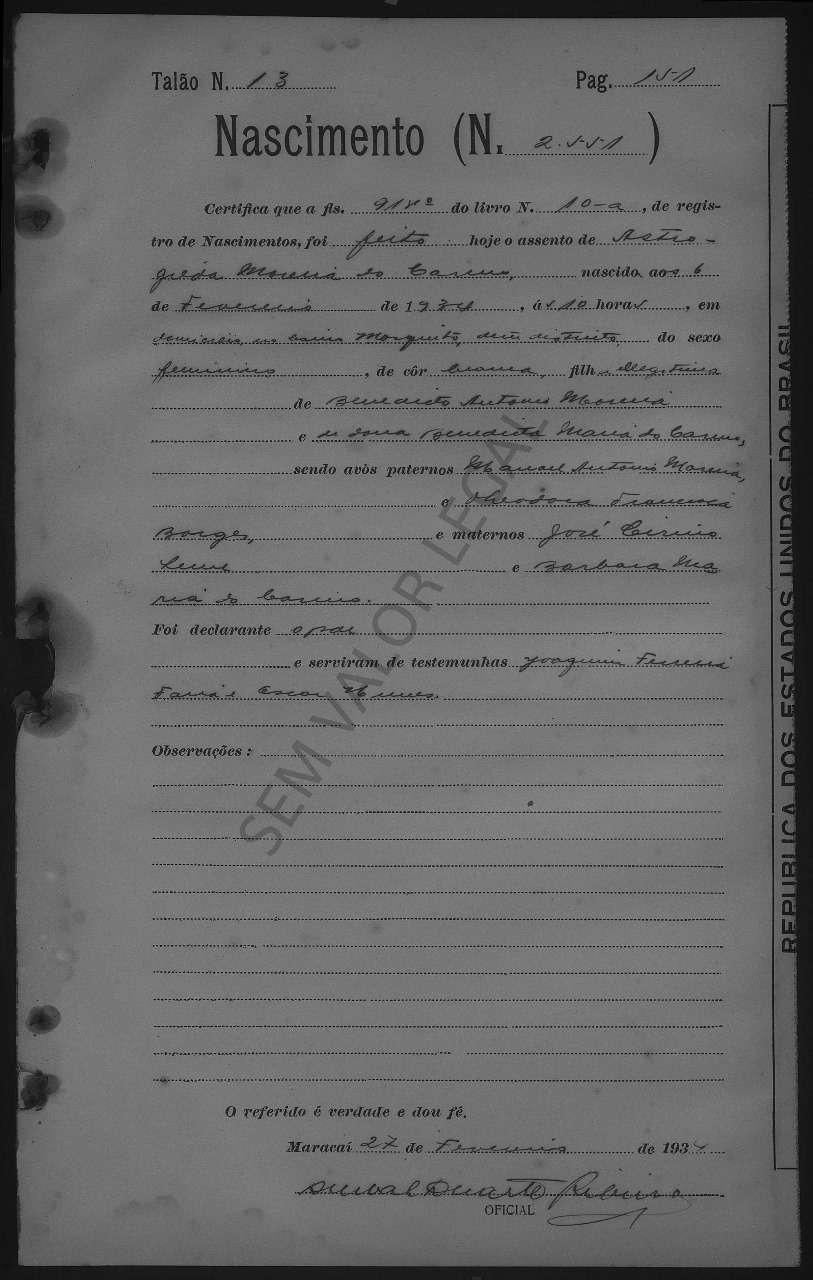 Talão N. 13 Pag. 151
Nascimento (N. 2.551)
Certifica que a fls. 91 do livro N. 10-a, de regis-
tro de Nascimentos, foi feito hoje o assento de Astro-
gilda Moreira do Carmo, nascida aos 6
de Fevereiro de 1934, ás 10 horas, em
domicilio, no bairro Mosquito, deste districto, do sexo
feminino, de côr branca, filha illegitima
de Benedicto Antonio Moreira
e de dona Benedicta Maria do Carmo,
sendo avòs paternos Manoel Antonio Moreira,
e Theodora Francisca
Borges, e maternos José Cirino
Leme e Barbara Ma
ria do Carmo.
Foi declarante o pae
e serviram de testemunhas Joaquim Ferreira
Faria e Oscar Nunes.
Observações:
O referido é verdade e dou fé.
Maracaí 27 de Fevereiro de 1934
Duarte Ribeiro
OFICIAL
REPUBLICA DOS ESTADOS UNIDOS DO BRASIL
SEM VALOR LEGAL